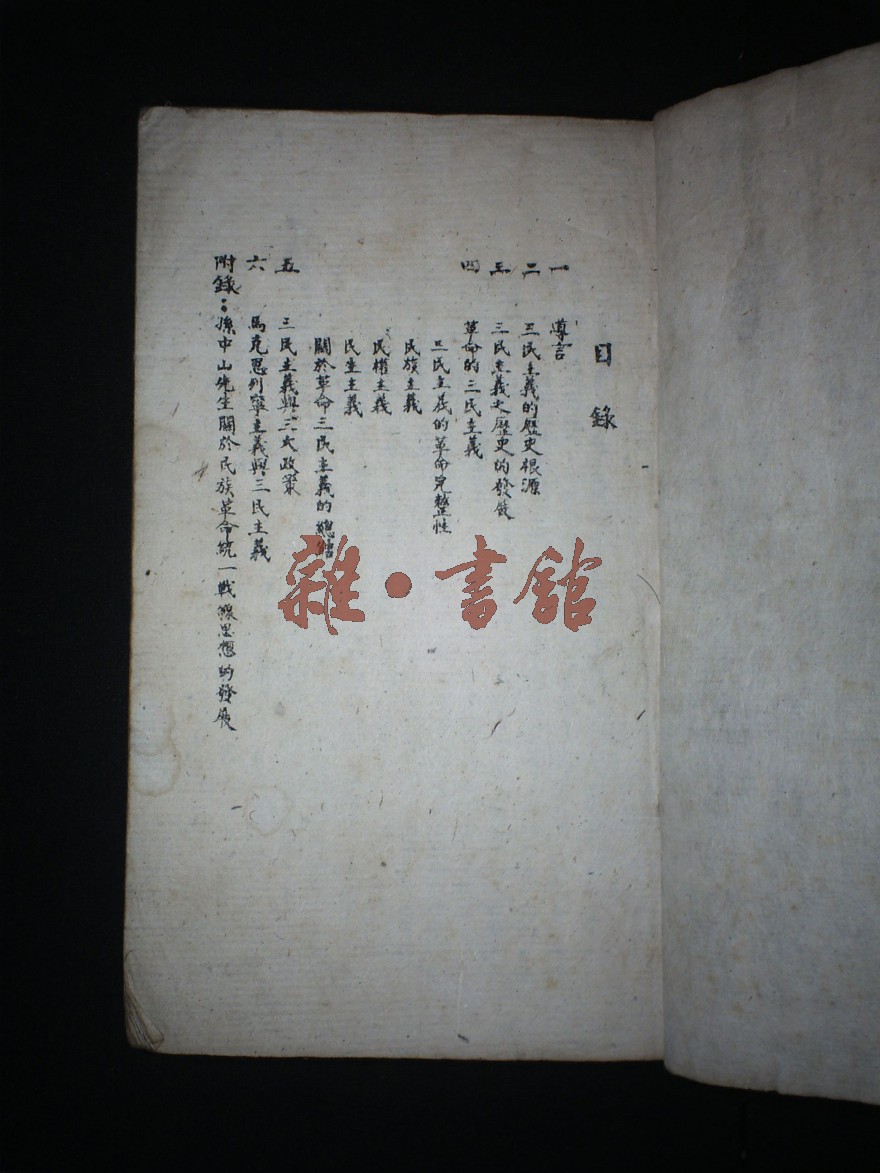 目錄
一 導言
二 三民主義的歷史根源
三 三民主義之歷史的發展
四 革命的三民主義
三民主義的革命完整性
民族主義
民權主義
民生主義
關於革命三民主義的總結
五 三民主義與三大政策
六 馬克思列寧主義與三民主義
附錄：孫中山先生關於民族革命統一戰線思想的發展
雜·書館